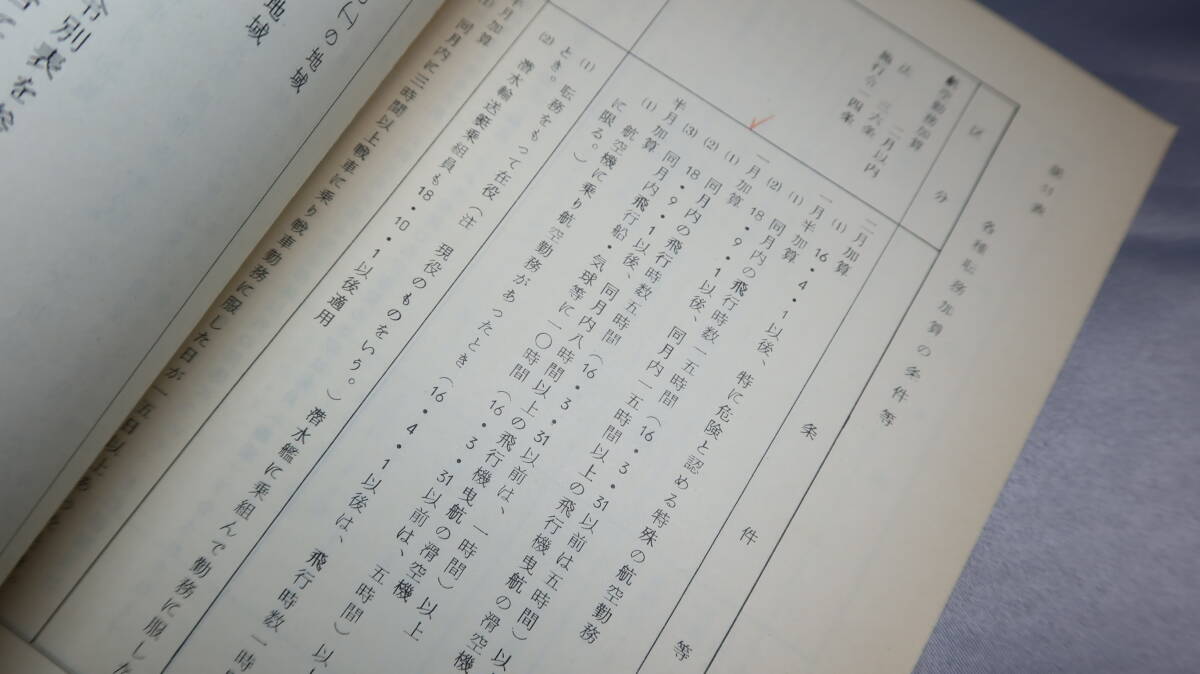 第11表
各種職務加算の条件等
区分
条件等
航空勤務加算
二月以内
法 三六条
施行令一四条
二月加算
(1) 16・4・1以後、特に危険と認める特殊の航空勤務
一月半加算
(1) 同月内の飛行時数一五時間(16・3・31以前は五時間)以
(2) 18・9・1以後、同月内一五時間以上の飛行機曳航の滑空機
一月加算
(1) 同月内の飛行時数五時間(16・3・31以前は、一時間)以上
(2) 18・9・1以後、同月内八時間以上の飛行機曳航の滑空機
(3) 同月内飛行船・気球等に一〇時間(16・3・31以前は、五時間)以
半月加算
(1) 航空機に乗り航空勤務があったとき(16・4・1以後は、飛行時数一時
に限る。)
(1) 職務をもって在役(注 現役のものをいう。)潜水艦に乗組んで勤務に服した
とき。
(2) 潜水輸送艇乗組員も18・10・1以後適用
半月加算
(1) 同月内に三時間以上戦車に乗り戦車勤務に服した日が一五日以上あ
の地域
地域
別表を